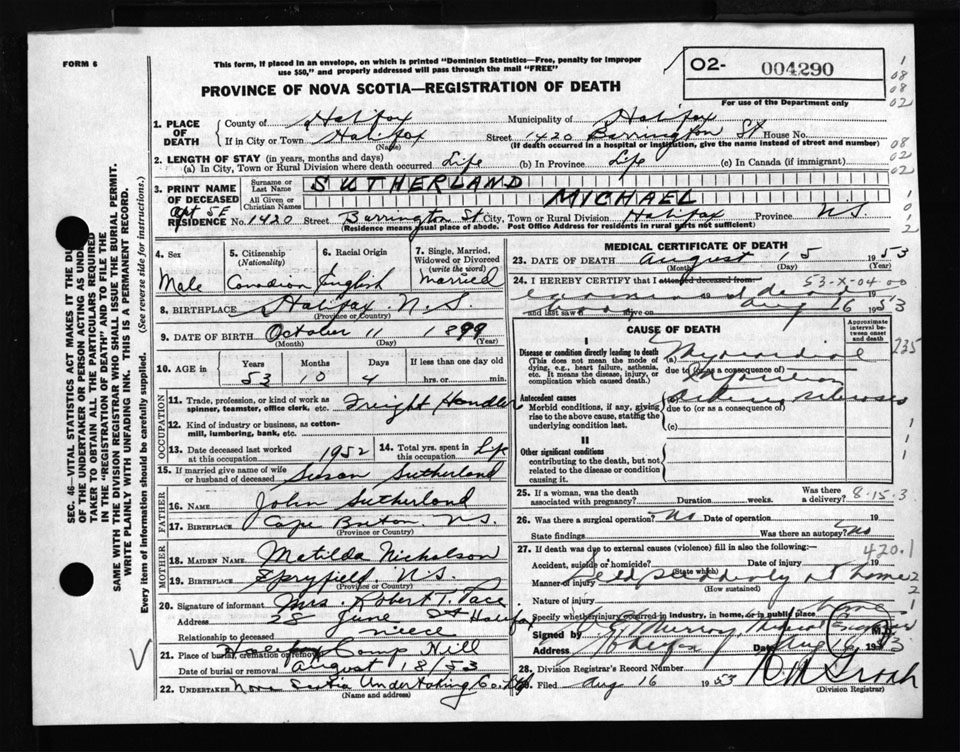 FORM 6
This form, if placed in an envelope, on which is printed "Dominion Statistics—Free, penalty for improper
use $50," and properly addressed will pass through the mail "FREE"
O2- 004290
For use of the Department only
PROVINCE OF NOVA SCOTIA—REGISTRATION OF DEATH
1. PLACE OF DEATH
County of Halifax Municipality of Halifax
If in City or Town Halifax Street 1420 Barrington St House No.
(Name) (If death occurred in a hospital or institution, give the name instead of street and number)
2. LENGTH OF STAY (in years, months and days)
(a) In City, Town or Rural Division where death occurred Life (b) In Province Life (c) In Canada (if immigrant)
3. PRINT NAME OF DECEASED
Surname or Last Name SUTHERLAND
All Given or Christian Names MICHAEL
Apt 5E
RESIDENCE No. 1420 Street Barrington St. City, Town or Rural Division Halifax Province N.S.
(Residence means usual place of abode. Post Office Address for residents in rural parts not sufficient)
4. Sex
Male
5. Citizenship (Nationality)
Canadian
6. Racial Origin
English
7. Single, Married, Widowed or Divorced (write the word)
Married
8. BIRTHPLACE Halifax N.S.
(Province or Country)
9. DATE OF BIRTH October 11 1899
(Month) (Day) (Year)
10. AGE in Years Months Days If less than one day old
53 10 4 hrs. or min.
OCCUPATION
11. Trade, profession, or kind of work as spinner, teamster, office clerk, etc. Freight Handler
12. Kind of industry or business, as cotton-mill, lumbering, bank, etc.
13. Date deceased last worked at this occupation 1952
14. Total yrs. spent in this occupation Life
15. If married give name of wife or husband of deceased Susan Sutherland
FATHER
16. NAME John Sutherland
17. BIRTHPLACE Cape Breton N.S.
(Province or Country)
MOTHER
18. MAIDEN NAME Matilda Nicholson
19. BIRTHPLACE Spryfield N.S.
(Province or Country)
20. Signature of informant Mrs. Robert T. Pace
Address 28 June St Halifax
Relationship to deceased niece
21. Place of burial, cremation or removal Halifax Camp Hill
Date of burial or removal August 18/53
22. UNDERTAKER Nova Scotia Undertaking Co. Ltd
(Name and address)
MEDICAL CERTIFICATE OF DEATH
23. DATE OF DEATH August 15 1953
(Month) (Day) (Year)
24. I HEREBY CERTIFY that I attended deceased from:
53-X-04 00
Aug 16 1953
and last saw alive on
CAUSE OF DEATH
Approximate interval between onset and death
I
Disease or condition directly leading to death
(This does not mean the mode of dying, e.g., heart failure, asthenia, etc. It means the disease, injury, or complication which caused death.)
(a) Myocardial
due to (or as a consequence of)
Antecedent causes
Morbid conditions, if any, giving rise to the above cause, stating the underlying condition last.
(b)
due to (or as a consequence of)
(c)
II
Other significant conditions
contributing to the death, but not related to the disease or condition causing it.
25. If a woman, was the death associated with pregnancy? Duration weeks. Was there a delivery? 8-15-3
26. Was there a surgical operation? No Date of operation 19
State findings Was there an autopsy? No
27. If death was due to external causes (violence) fill in also the following:— 420.1
Accident, suicide or homicide? Date of injury 19
(State which)
Manner of injury died suddenly at home
(How sustained)
Nature of injury
Specify whether injury occurred in industry, in home, or in public place Home
Signed by Murray, Medical Examiner M.
Address Halifax Date Aug 16 1953
28. Division Registrar's Record Number
29. Filed Aug 16 1953
(Division Registrar)
SEC. 46—VITAL STATISTICS ACT MAKES IT THE DU
OF THE UNDERTAKER OR PERSON ACTING AS UNDE
TAKER TO OBTAIN ALL THE PARTICULARS REQUIRED
IN THE "REGISTRATION OF DEATH" AND TO FILE THE
SAME WITH THE DIVISION REGISTRAR WHO SHALL ISSUE THE BURIAL PERMIT.
WRITE PLAINLY WITH UNFADING INK. THIS IS A PERMANENT RECORD.
Every item of information should be carefully supplied. (See reverse side for instructions.)
1
08
08
02
08
02
02
235